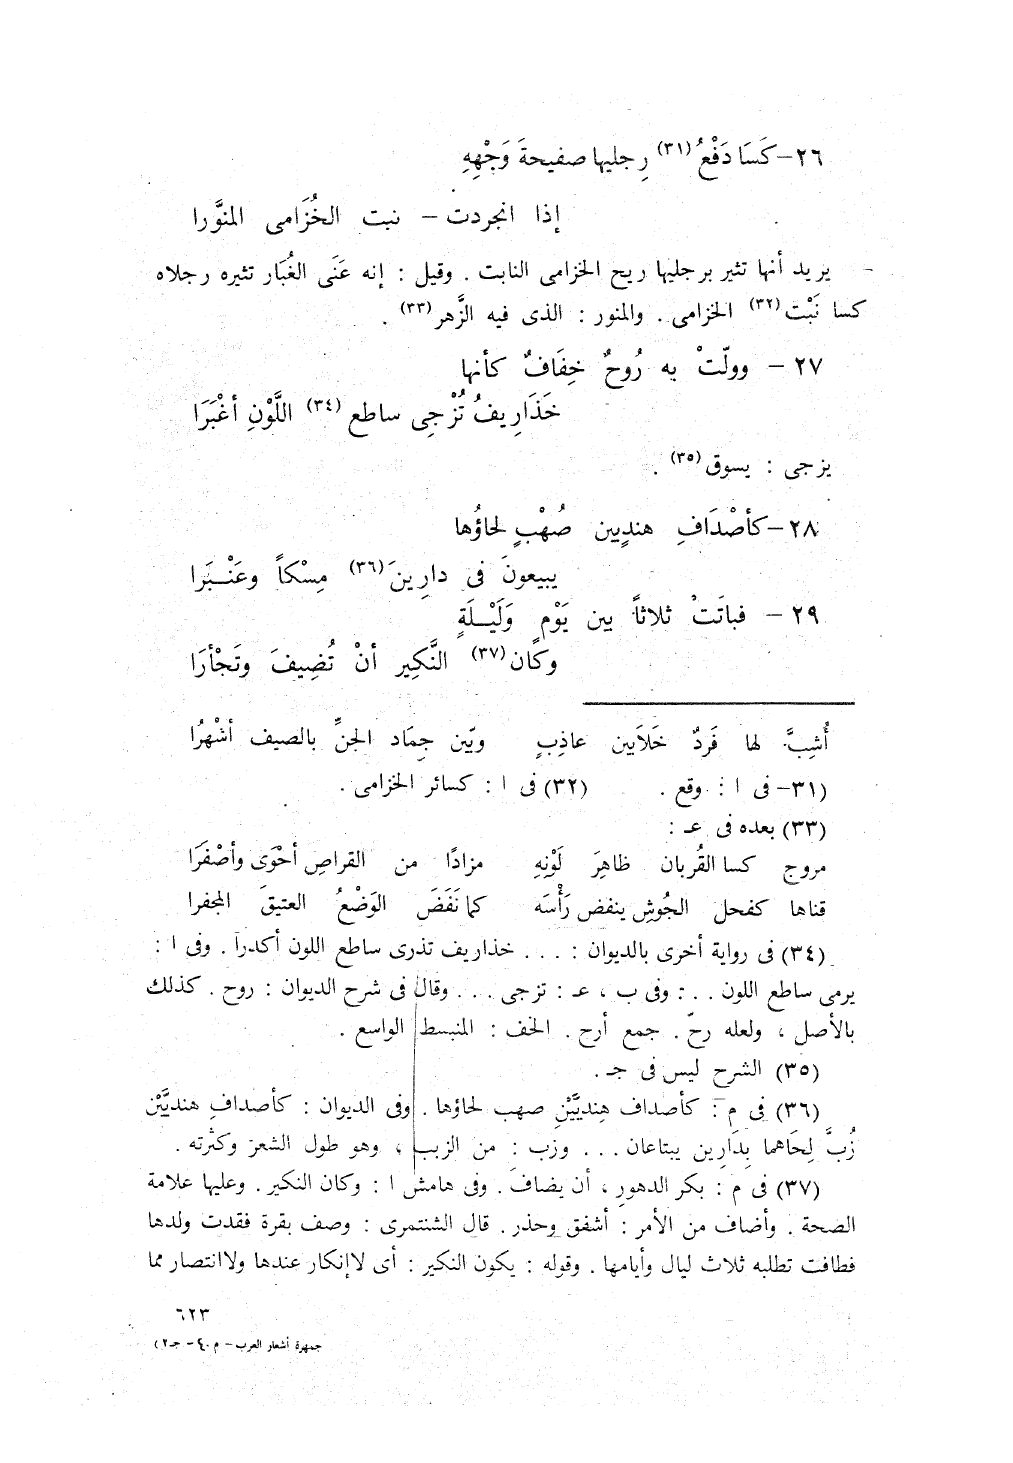 ٢٦ – كَسَا دَفْعُ (٣١) رِجليها صفيحةَ وَجْهِهِ
إذا انجردت – نبت الخُزَامى المنوَّرا
– يريد أنها تثير برجليها ريح الخزامى النابت . وقيل : إنه عَنَى الغُبَار تثيره رجلاه
كسا نَبْت (٣٢) الخزامى . والمنور : الذى فيه الزَّهر (٣٣) .
٢٧ – وولّتْ به رُوحٌ خِفَافٌ كأنها
خَذَارِيفُ تُزْجِى ساطع (٣٤) اللَّوْنِ أغْبَرَا
يزجى : يسوق (٣٥) .
٢٨ – كأصْدَافِ هنديين صُهْبٍ لحاؤُها
يبيعونَ فى دارِينَ (٣٦) مِسْكاً وعَنْبَرا
٢٩ – فباتَتْ ثلاثاً بين يَوْمٍ وَلَيْلَةٍ
وكان (٣٧) النَّكِير أنْ تُضِيفَ وتَجْأرَا
أُشِبَّ لها فَردٌ خَلاَبين عاذِبٍ وبّين جِمَاد الجنِّ بالصيف أشْهُرًا
(٣١– فى ا : وقع . (٣٢) فى ا : كسائر الخزامى .
(٣٣) بعده فى عـ :
مروج كسا القُربان ظاهِرَ لَوْنِهِ مزادًا من القراصِ أحْوَى وأصْفَرَا
قناها كفحل الجُوشِ ينفض رَأْسَه كما نَفَضَ الوَضْعُ العتيقَ المجفرا
(٣٤) فى رواية أخرى بالديوان : . . . خذاريف تذرى ساطع اللون أكدرا . وفى ا :
يرمى ساطع اللون . . : وفى ب ، عـ : تزجى . . . وقال فى شرح الديوان : روح . كذلك
بالأصل ، ولعله رحّ . جمع أرح . الخف : المنبسط الواسع .
(٣٥) الشرح ليس فى جـ .
(٣٦) فى م : كأصداف هِنديَّيْنِ صهب لحاؤها . وفى الديوان : كأصدافِ هنديَّيْن
زُبَّ لِحَاهما بِدَارِين يبتاعان . . . وزب : من الزبب ، وهو طول الشعر وكثرته .
(٣٧) فى م : بكر الدهورِ ، أن يضاف . وفى هامش ا : وكان النكير . وعليها علامة
الصحة . وأضاف من الأمر : أشفق وحذر . قال الشنتمرى : وصف بقرة فقدت ولدها
فطافت تطلبه ثلاث ليال وأيامها . وقوله : يكون النكير : أى لاإنكار عندها ولاانتصار مما
٦٢٣
جمهرة أشعار العرب – م ٤٠ – جـ٢ )